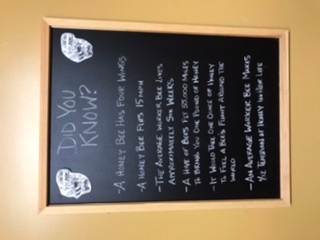 DID YOU
KNOW?
-A HONEY BEE HAS FOUR WINGS
-A HONEY BEE FLIES 15 MPH
-THE AVERAGE WORKER BEE LIVES
APPROXIMATELY SIX WEEKS
-A HIVE OF BEES FLY 55,000 MILES
TO BRING YOU ONE POUND OF HONEY
-IT WOULD TAKE ONE OUNCE OF HONEY
TO FUEL A BEE'S FLIGHT AROUND THE
WORLD
-AN AVERAGE WORKER BEE MAKES
1/12 TEASPOON OF HONEY IN HER LIFE